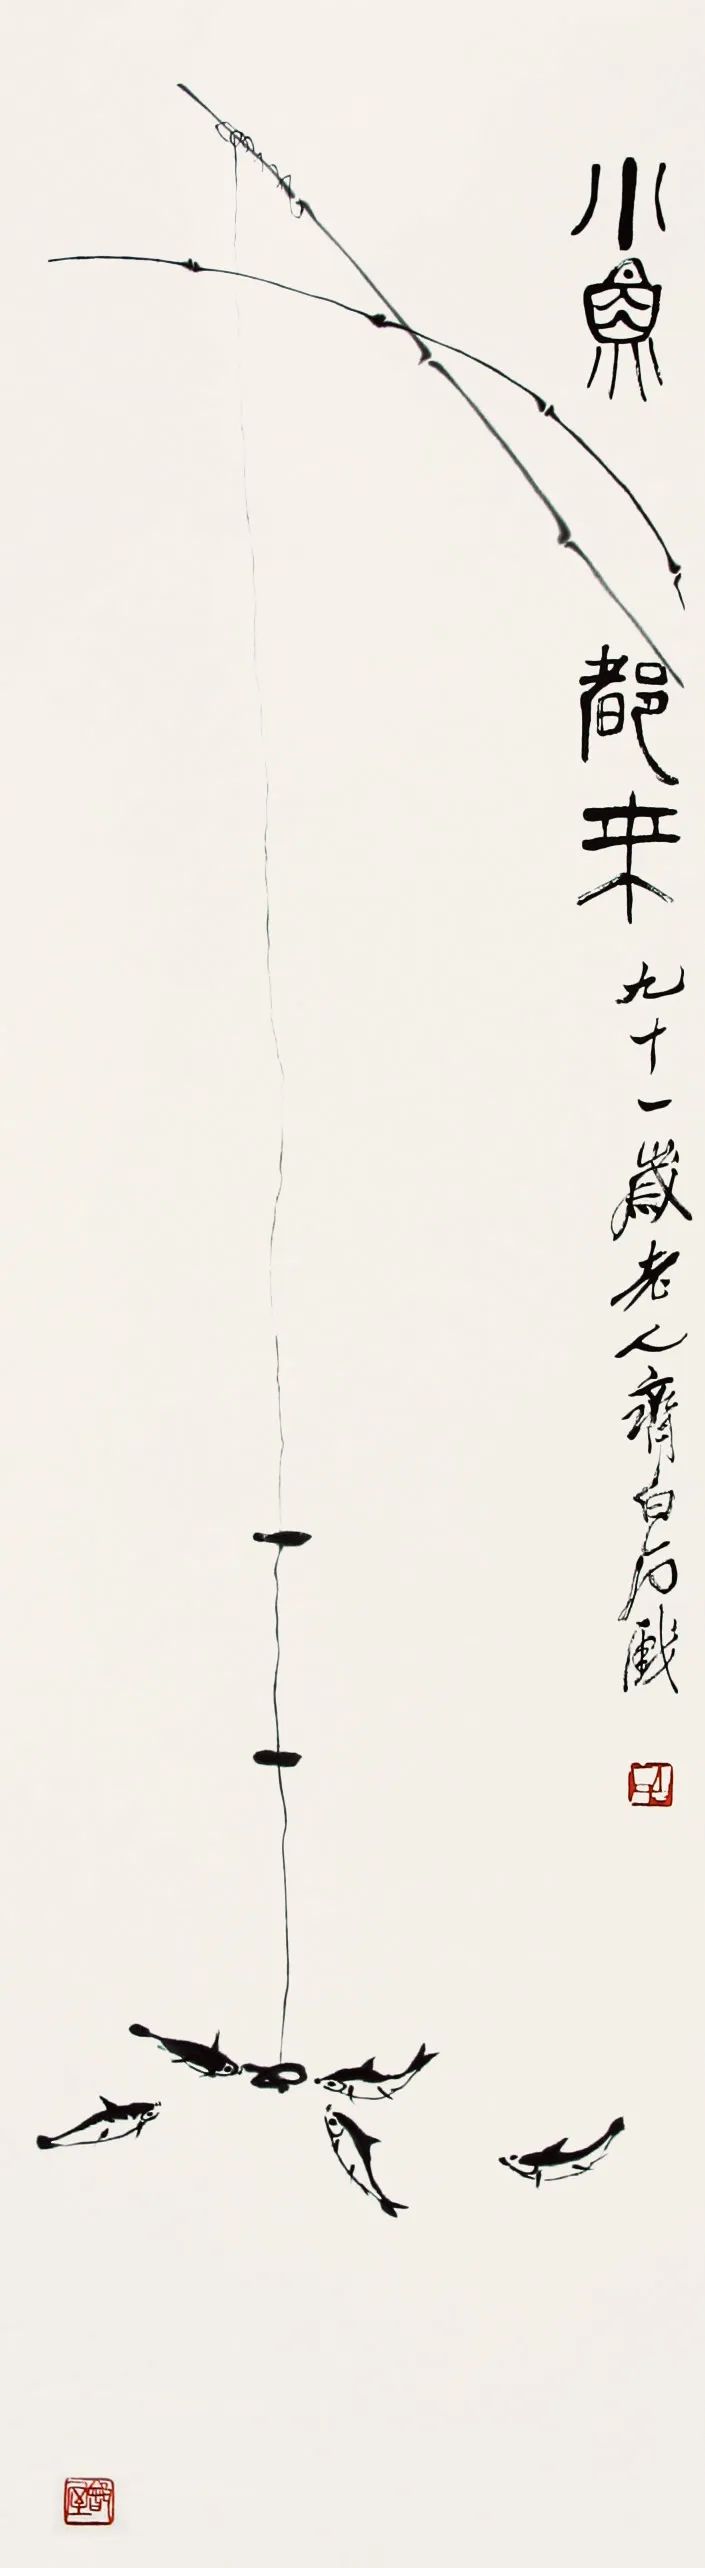 小魚都来九十一歲老人齊白石戲